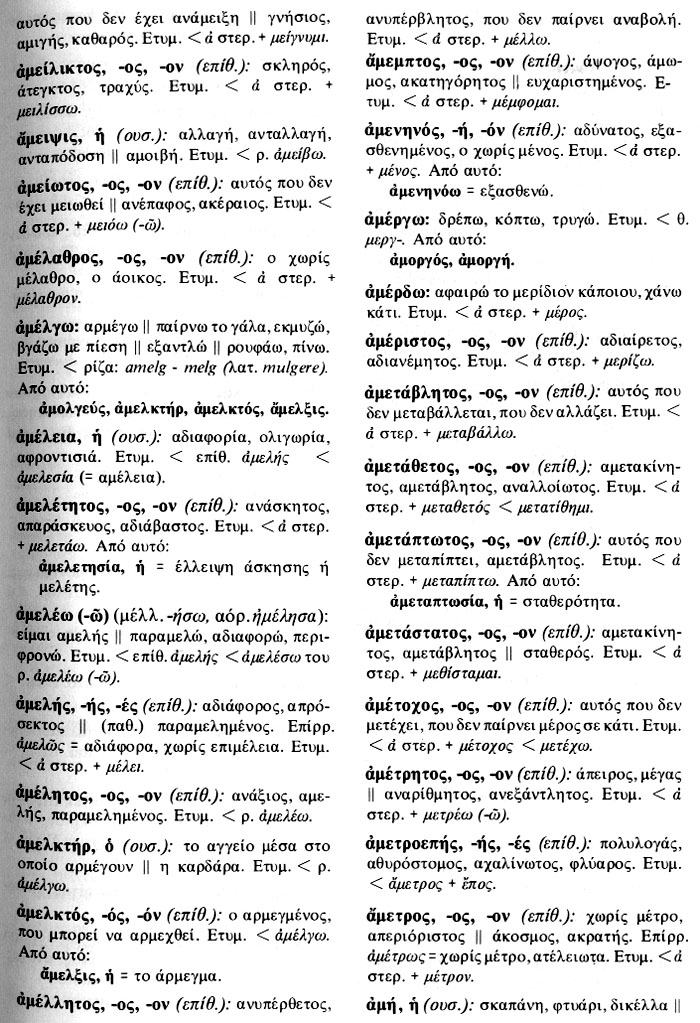 αυτός που δεν έχει ανάμειξη || γνήσιος,
αμιγής, καθαρός. Ετυμ. < ἀ στερ. + μείγνυμι.
ἀμείλικτος, -ος, -ον (επίθ.): σκληρός,
άτεγκτος, τραχύς. Ετυμ. < ἀ στερ. +
μειλίσσω.
ἄμειψις, ἡ (ουσ.): αλλαγή, ανταλλαγή,
ανταπόδοση || αμοιβή. Ετυμ. < ρ. ἀμείβω.
ἀμείωτος, -ος, -ον (επίθ.): αυτός που δεν
έχει μειωθεί || ανέπαφος, ακέραιος. Ετυμ. <
ἀ στερ. + μειόω (-ῶ).
ἀμέλαθρος, -ος, -ον (επίθ.): ο χωρίς
μέλαθρο, ο άοικος. Ετυμ. < ἀ στερ. +
μέλαθρον.
ἀμέλγω: αρμέγω || παίρνω το γάλα, εκμυζώ,
βγάζω με πίεση || εξαντλώ || ρουφάω, πίνω.
Ετυμ. < ρίζα: amelg - melg (λατ. mulgere).
Από αυτό:
ἀμολγεύς, ἀμελκτήρ, ἀμελκτός, ἄμελξις.
ἀμέλεια, ἡ (ουσ.): αδιαφορία, ολιγωρία,
αφροντισιά. Ετυμ. < επίθ. ἀμελής <
ἀμελεσία (= αμέλεια).
ἀμελέτητος, -ος, -ον (επίθ.): ανάσκητος,
απαράσκευος, αδιάβαστος. Ετυμ. < ἀ στερ.
+ μελετάω. Από αυτό:
ἀμελετησία, ἡ = έλλειψη άσκησης ή
μελέτης.
ἀμελέω (-ῶ) (μέλλ. -ήσω, αόρ. ἠμέλησα):
είμαι αμελής || παραμελώ, αδιαφορώ, περι-
φρονώ. Ετυμ. < επίθ. ἀμελής < ἀμελέσω του
ρ. ἀμελέω (-ῶ).
ἀμελής, -ής, -ές (επίθ.): αδιάφορος, απρό-
σεκτος || (παθ.) παραμελημένος. Επίρρ.
ἀμελῶς = αδιάφορα, χωρίς επιμέλεια. Ετυμ.
< ἀ στερ. + μέλει.
ἀμέλητος, -ος, -ον (επίθ.): ανάξιος, αμε-
λής, παραμελημένος. Ετυμ. < ρ. ἀμελέω.
ἀμελκτήρ, ὁ (ουσ.): το αγγείο μέσα στο
οποίο αρμέγουν || η καρδάρα. Ετυμ. < ρ.
ἀμέλγω.
ἀμελκτός, -ός, -όν (επίθ.): ο αρμεγμένος,
που μπορεί να αρμεχθεί. Ετυμ. < ἀμέλγω.
Από αυτό:
ἄμελξις, ἡ = το άρμεγμα.
ἀμέλλητος, -ος, -ον (επίθ.): ανυπέρθετος,
ανυπέρβλητος, που δεν παίρνει αναβολή.
Ετυμ. < ἀ στερ. + μέλλω.
ἄμεμπτος, -ος, -ον (επίθ.): άψογος, άμω-
μος, ακατηγόρητος || ευχαριστημένος. Ε-
τυμ. < ἀ στερ. + μέμφομαι.
ἀμενηνός, -ή, -όν (επίθ.): αδύνατος, εξα-
σθενημένος, ο χωρίς μένος. Ετυμ. < ἀ στερ.
+ μένος. Από αυτό:
ἀμενηνόω = εξασθενώ.
ἀμέργω: δρέπω, κόπτω, τρυγώ. Ετυμ. < θ.
μεργ-. Από αυτό:
ἀμοργός, ἀμοργή.
ἀμέρδω: αφαιρώ το μερίδιον κάποιου, χάνω
κάτι. Ετυμ. < ἀ στερ. + μέρος.
ἀμέριστος, -ος, -ον (επίθ.): αδιαίρετος,
αδιανέμητος. Ετυμ. < ἀ στερ. + μερίζω.
ἀμετάβλητος, -ος, -ον (επίθ.): αυτός που
δεν μεταβάλλεται, που δεν αλλάζει. Ετυμ. <
ἀ στερ. + μεταβάλλω.
ἀμετάθετος, -ος, -ον (επίθ.): αμετακίνη-
τος, αμετάβλητος, αναλλοίωτος. Ετυμ. < ἀ
στερ. + μεταθετός < μετατίθημι.
ἀμετάπτωτος, -ος, -ον (επίθ.): αυτός που
δεν μεταπίπτει, αμετάβλητος. Ετυμ. < ἀ
στερ. + μεταπίπτω. Από αυτό:
ἀμεταπτωσία, ἡ = σταθερότητα.
ἀμετάστατος, -ος, -ον (επίθ.): αμετακίνη-
τος, αμετάβλητος || σταθερός. Ετυμ. < ἀ
στερ. + μεθίσταμαι.
ἀμέτοχος, -ος, -ον (επίθ.): αυτός που δεν
μετέχει, που δεν παίρνει μέρος σε κάτι. Ετυμ.
< ἀ στερ. + μέτοχος < μετέχω.
ἀμέτρητος, -ος, -ον (επίθ.): άπειρος, μέγας
|| αναρίθμητος, ανεξάντλητος. Ετυμ. < ἀ
στερ. + μετρέω (-ῶ).
ἀμετροεπής, -ής, -ές (επίθ.): πολυλογάς,
αθυρόστομος, αχαλίνωτος, φλύαρος. Ετυμ.
< ἄμετρος + ἔπος.
ἄμετρος, -ος, -ον (επίθ.): χωρίς μέτρο,
απεριόριστος || άκοσμος, ακρατής. Επίρρ.
ἀμέτρως = χωρίς μέτρο, ατέλειωτα. Ετυμ. < ἀ
στερ. + μέτρον.
ἀμή, ἡ (ουσ.): σκαπάνη, φτυάρι, δικέλλα ||